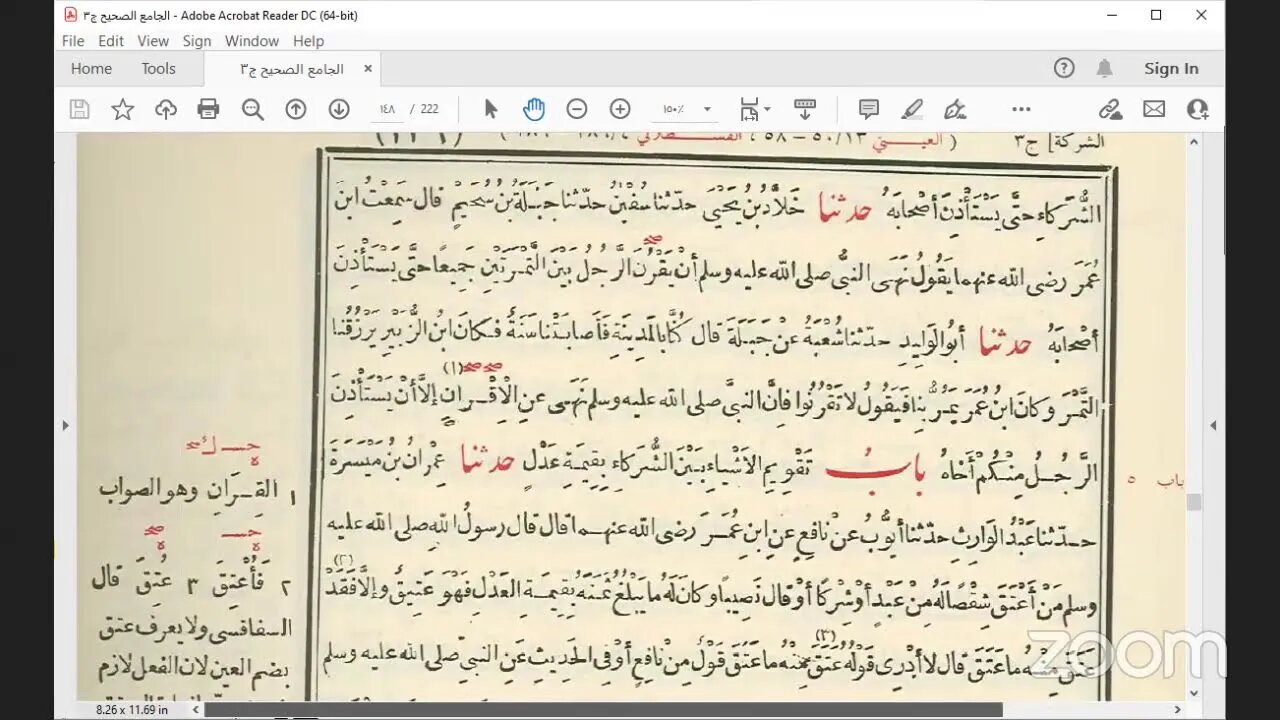 الجامع الصحيح ج٣ - Adobe Acrobat Reader DC (64-bit)
File Edit View Sign Window Help
Home Tools الجامع الصحيح ج٣ × Sign In
١٤٨ / 222 ١٥٠٪
الشركة] ج٣ ( العيني ١٣/٥٠ – ٥٨ ،
الشُّرَكَاءِ حَتَّى يَسْتَأْذِنَ أَصْحَابَهُ حدثنا خَلَّادُ بْنُ يَحْيَى حدّثنا سُفْيٰنُ حدّثنا جَبَلَةُ بْنُ سُحَيْمٍ قال سَمِعْتُ ابْنَ
عُمَرَ رضى الله عنهما يَقُولُ نَهَى النبىُّ صلى الله عليه وسلم أَنْ يَقْرُنَ الرَّجُلُ بَيْنَ التَّمْرَتَيْنِ جَمِيعًا حَتَّى يَسْتَأْذِنَ
أَصْحَابَهُ حدثنا أبُو الوَلِيدِ حدّثنا شُعْبَةُ عَنْ جَبَلَةَ قال كُنَّا بِالمَدِينَةِ فَأَصَابَتْنَا سَنَةٌ فَكَانَ ابنُ الزُّبَيْرِ يَرْزُقُنَا
التَّمْرَ وكانَ ابنُ عُمَرَ يَمُرُّ بِنَا فَيَقُولُ لَا تَقْرُنُوا فَإِنَّ النبىَّ صلى الله عليه وسلم نَهَى عَنِ الْإِقْرَانِ (١) إلَّا أَنْ يَسْتَأْذِنَ
الرَّجُلُ مِنْكُمْ أَخَاهُ بابُ تَقْوِيمِ الأَشْيَاءِ بَيْنَ الشُّرَكَاءِ بِقِيمَةِ عَدْلٍ حدثنا عِمْرَانُ بْنُ مَيْسَرَةَ
باب ٥
حدّثنا عَبْدُ الوَارِثِ حدّثنا أَيُّوبُ عَنْ نافِعٍ عَنِ ابنِ عُمَرَ رضى الله عنهما قال قال رسولُ اللهِ صلى الله عليه
وسلم مَنْ أَعْتَقَ شِقْصًا لَهُ مِنْ عَبْدٍ أَوْ شِرْكًا أَوْ قال نَصِيبًا وكانَ لَهُ ما يَبْلُغُ ثَمَنَهُ بِقِيمَةِ العَدْلِ فَهْوَ عَتِيقٌ وإلَّا فَقَدْ (٢)
عَتَقَ مِنْهُ ما عَتَقَ قال لا أَدْرِى قَوْلُهُ عَتَقَ (٣) مِنْهُ ما عَتَقَ قَوْلٌ مِنْ نافِعٍ أَوْ فِى الحَدِيثِ عَنِ النبىِّ صلى الله عليه وسلم
١ القِرَانِ وهو الصواب
٢ فَأُعْتِقَ ٣ عُتِقَ قال
السفاقسى ولا يعرف عتق
بضم العين لان الفعل لازم
zoom
8.26 x 11.69 in